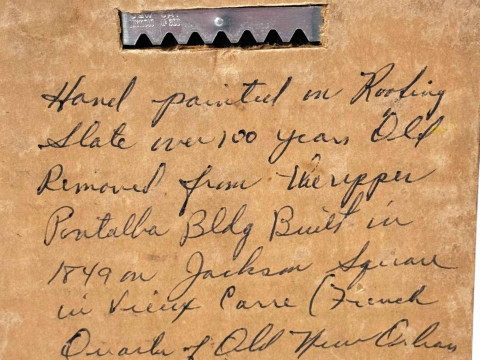 Hand painted on Roofing
Slate over 100 years Old
Removed from the upper
Pontalba Bldg Built in
1849 on Jackson Square
in Vieux Carre (French
Quarter of Old New Orleans